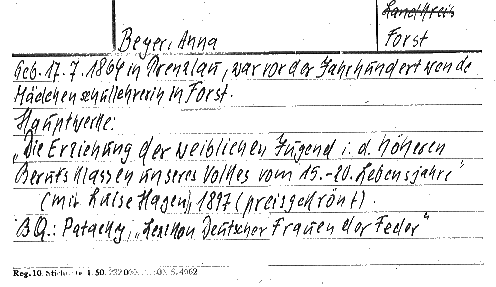 Landkreis
Beyer, Anna
Forst
Geb. 17.7.1864 in Prenzlau, war vor der Jahrhundertwende
Mädchenschullehrerin in Forst.
Hauptwerke:
„Die Erziehung der weiblichen Jugend i. d. höheren
Berufsklassen unseres Volkes vom 15.-20. Lebensjahre"
(mit Luise Hagen), 1897 (preisgekrönt).
BQ.: Pataky, „Lexikon Deutscher Frauen der Feder"
Reg. 10. 1. 50. 5. 4062